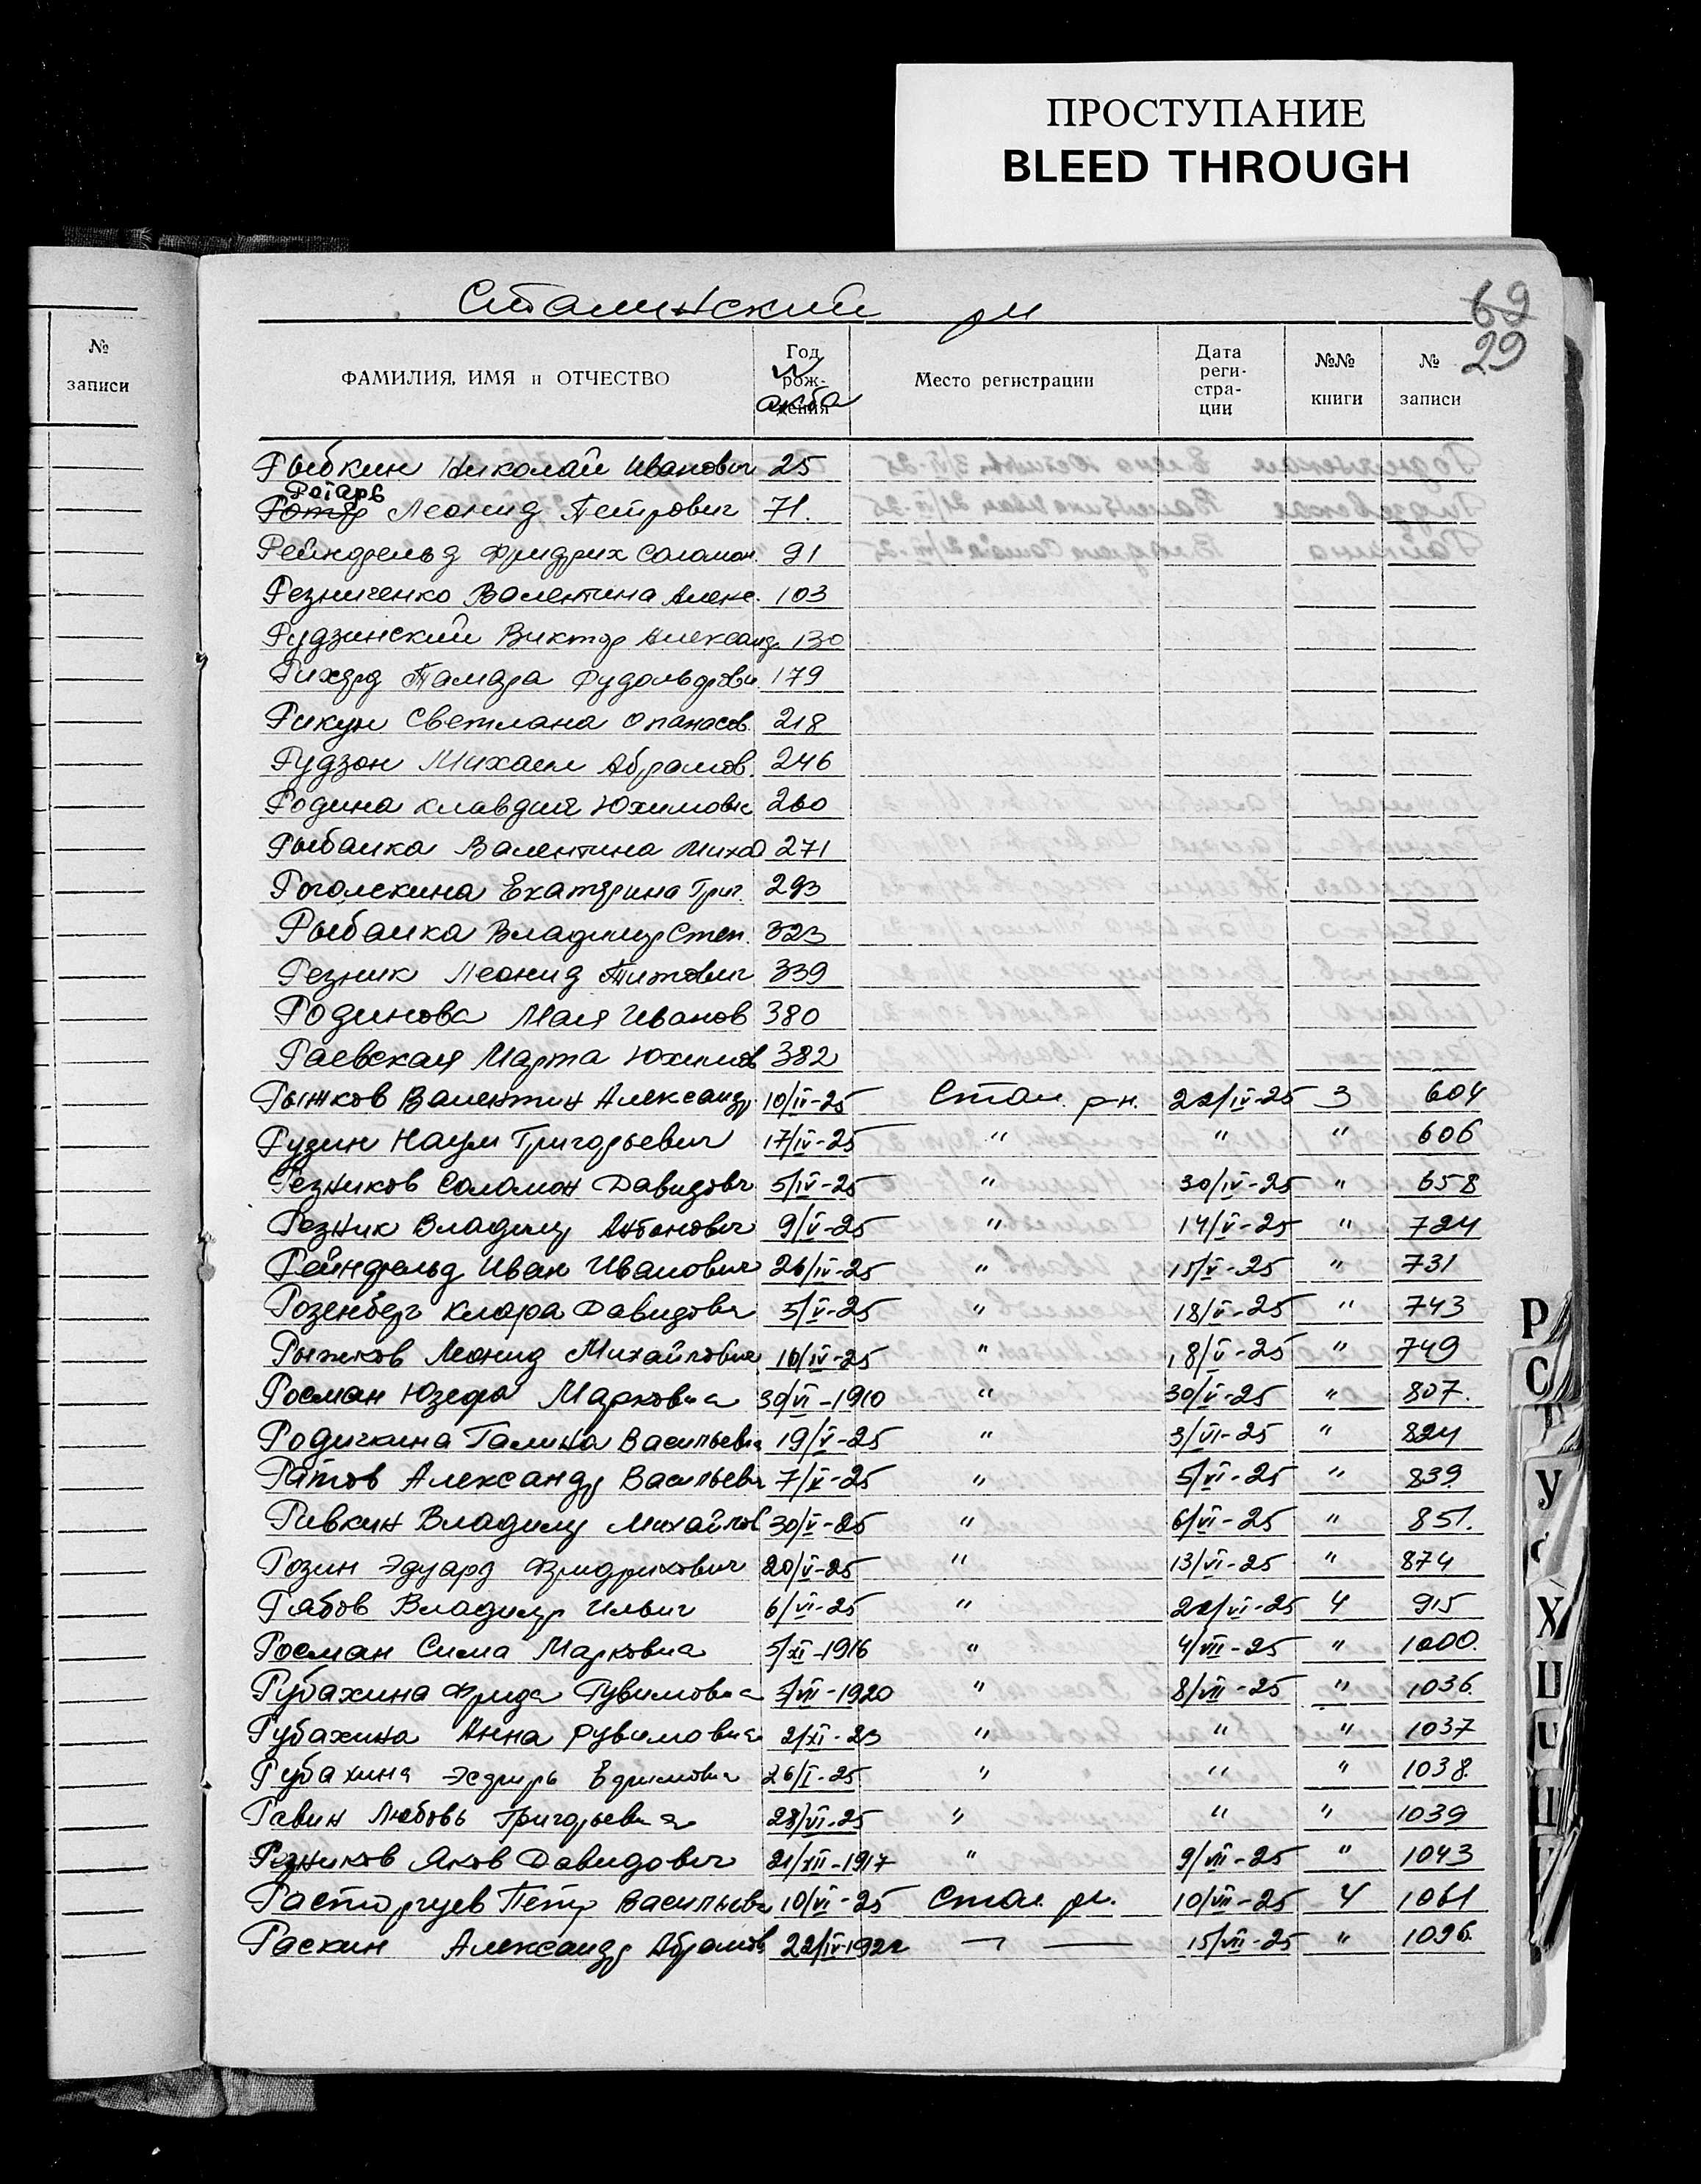 ПРОСТУПАНИЕ
BLEED THROUGH
Сталинский рн
69
29
№ записи
ФАМИЛИЯ, ИМЯ и ОТЧЕСТВО Год рождения № акта Место регистрации Дата регистрации №№ книги № записи
Рыбкин Николай Иванович 25
Ротарь
Ротар Леонид Петрович 71.
Рейнфельд Фридрих Соломон. 91
Резниченко Валентина Алекс. 103
Рудзинский Виктор Александ. 130
Рихард Тамара Рудольфовн. 179
Рикун Светлана Опанасов. 218
Рудзон Михаил Абрамов. 246
Родина Клавдия Юхимовн 260
Рыбалка Валентина Миха 271
Роголскина Екатерина Григ. 293
Рыбалка Владимир Степ. 323
Резник Леонид Титович 339
Родинова Мая Иванов 380
Раевская Марта Юхимов 382
Рыжков Валентин Александр 10/IV-25 Стал. рн. 22/IV-25 3 604
Рузин Наум Григорьевич 17/IV-25 " " " 606
Резников Соломон Давидович 5/IV-25 " 30/IV-25 " 658
Резник Владимир Антонович 9/V-25 " 14/V-25 " 724
Рейнфельд Иван Иванович 26/IV-25 " 15/V-25 " 731
Розенберг Клара Давидовна 5/V-25 " 18/V-25 " 743
Рыжков Леонид Михайлович 16/IV-25 " 18/V-25 " 749
Росман Юзефа Марковна 30/VI-1910 " 30/V-25 " 807.
Родичкина Галина Васильевна 19/V-25 " 3/VI-25 " 824
Ратов Александр Васильевич 7/V-25 " 5/VI-25 " 839
Ривкин Владимир Михайлов 30/V-25 " 6/VI-25 " 851.
Розин Эдуард Фридрихович 20/V-25 " 13/VI-25 " 874
Рябов Владимир Ильич 6/VI-25 " 22/VI-25 4 915
Росман Сима Марковна 5/XI-1916 " 4/VII-25 " 1000.
Рубахина Фрида Рувимовна 7/VII-1920 " 8/VII-25 " 1036
Рубахина Анна Рувимовна 2/XI-23 " " " 1037
Рубахина Эсфирь Ефимовна 26/I-25 " " " 1038
Равин Любовь Григорьевна 28/VI-25 " " " 1039
Резников Яков Давидович 21/XII-1917 " 9/VII-25 " 1043
Расторгуев Петр Васильевич 10/VI-25 Стал. рн. 10/VII-25 4 1061
Раскин Александр Абрамов 22/IV-1922 — 15/VII-25 " 1096.
Р
С
Т
У
Х